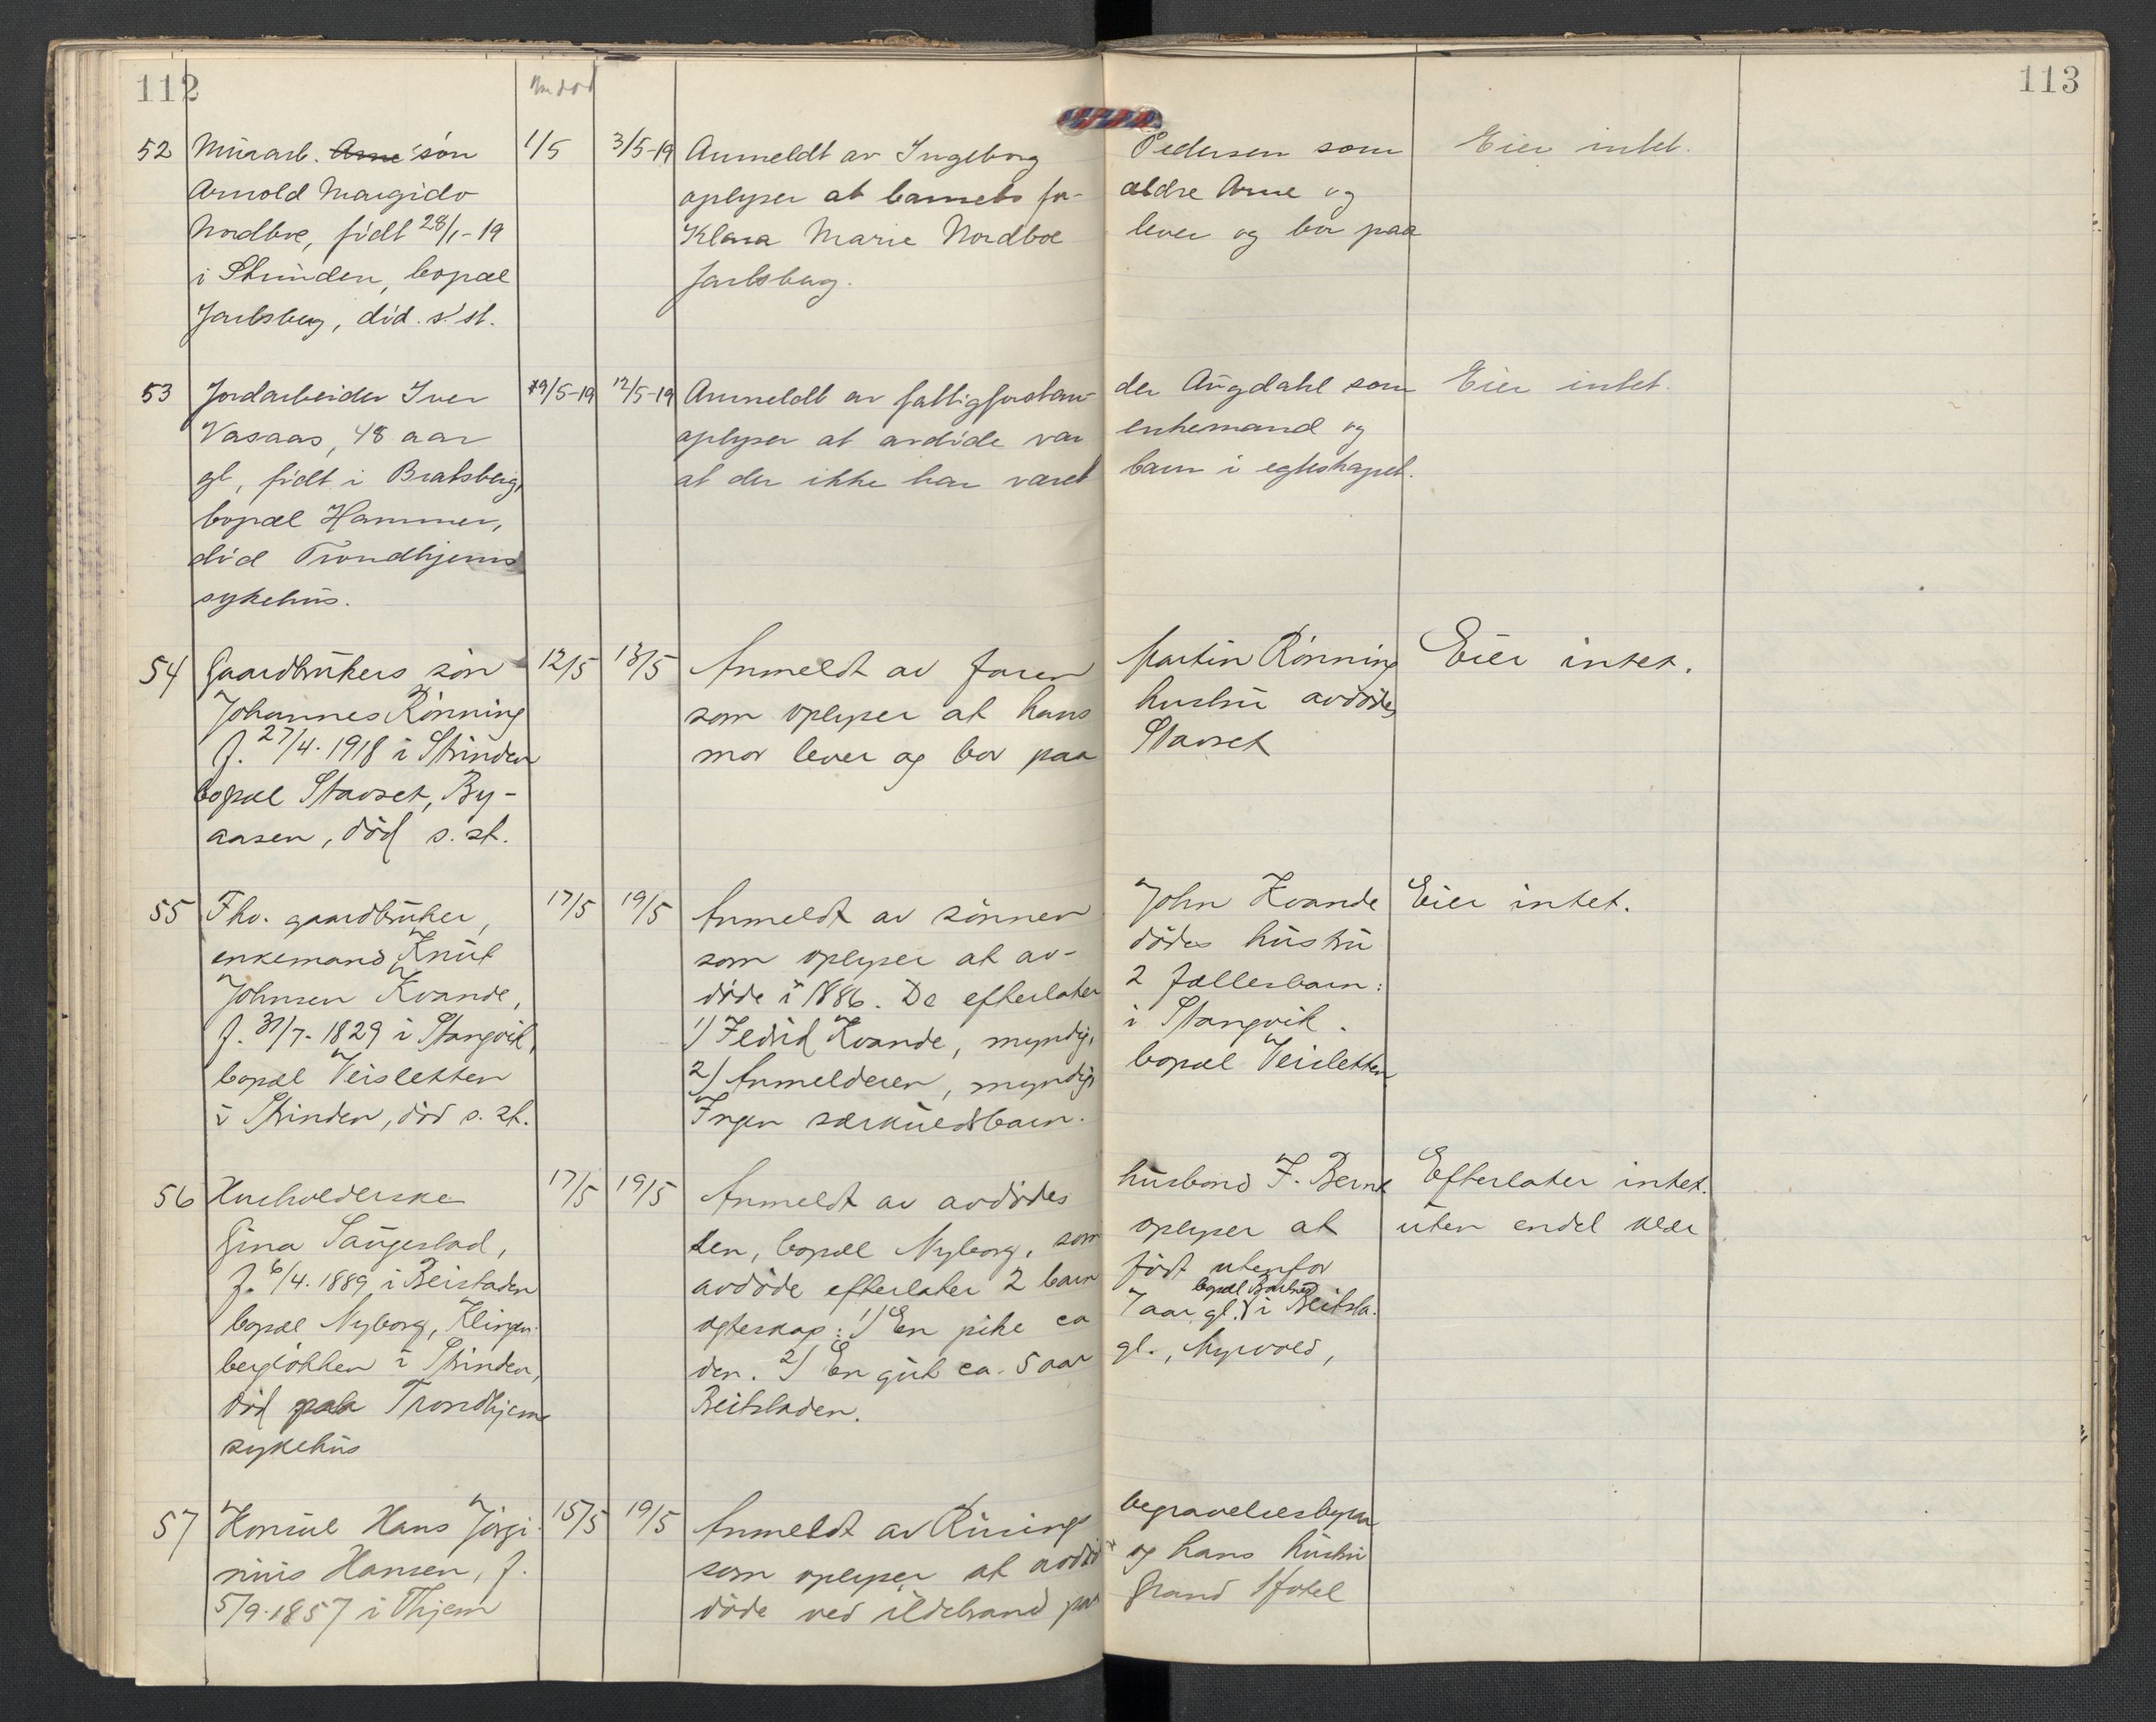 112
113
52 Murarb. Arne søn 1/5 3/5-19 Anmeldt av Ingeborg Pedersen som Eier intet.
Arnold Margido oplyser at barnets for- ældre Arne og
Nordboe, født 28/1-19 Klara Marie Nordboe lever og bor paa
i Strinden, bopæl Jarlsberg.
Jarlsberg, død s. st.
53 Jordarbeider Iver 9/5-19 12/5-19 Anmeldt av fattigforstan- der Augdahl som Eier intet.
Vasaas, 48 aar oplyser at avdøde var enkemand og
gl, født i Bratsberg, at der ikke har været barn i egteskapet.
bopæl Hammer,
død Trondhjems
sykehus.
54 Gaardbrukers søn 12/5 13/5 Anmeldt av faren Martin Rønning Eier intet.
Johannes Rønning som oplyser at hans hustru avdødes
f. 27/4.1918 i Strinden mor lever og bor paa Stavset
bopæl Stavset, By-
aasen, død s. st.
55 Fhv. gaardbruker, 17/5 19/5 Anmeldt av sønnen John Kvande Eier intet.
enkemand Knut som oplyser at av- dødes hustru
Johnsen Kvande, døde i 1886. De efterlater 2 fællesbarn:
f. 31/7.1829 i Stangvik, 1) Kvande, myndig, i Stangvik.
bopæl Veisletten 2) Anmelderen, myndig, bopæl Veisletten
i Strinden, død s. st. Ingen særkuldsbarn.
56 Husholderske 17/5 19/5 Anmeldt av avdødes husbond F. Bernt Efterlater intet.
Gina Saugestad, sen, bopæl Nyborg, som oplyser at uten endel klær
f. 6/4.1889 i Beistaden avdøde efterlater 2 barn født utenfor
bopæl Nyborg, Klingen- egteskap: 1) En pike ca 7 aar gl. bopæl i Beitsta-
bergløkken i Strinden, den. 2) En gut ca. 5 aar gl., Myrvold,
død paa Trondhjems Beitstaden.
sykehus
57 Konsul Hans Jørgi- 15/5 19/5 Anmeldt av Rusings begravelsesbyraa
nius Hansen, f. som oplyser at avdøde og hans hustru
5/9.1857 i Thjem døde ved ildebrand paa Grand Hotel